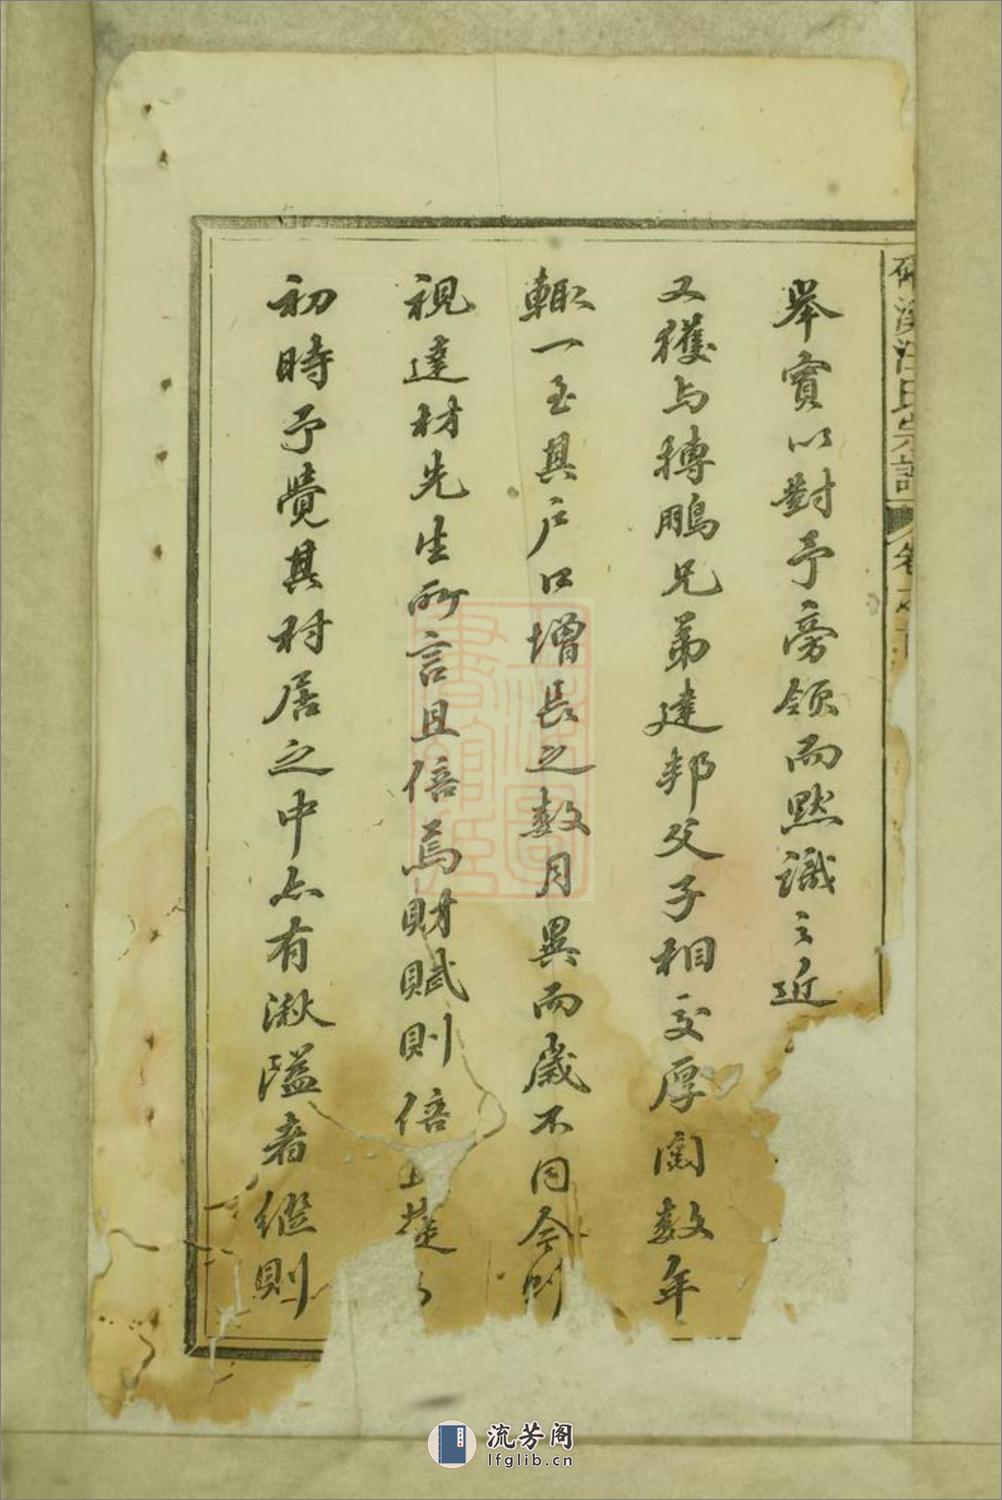 溪汪氏宗譜 卷之
舉實以對予旁領而默識之近
又獲与摶鵬兄弟建邦父子相交厚閱数年
輒一至其户口增長之数月異而歲不同今則
視達材先生所言且倍焉財賦則倍
初時予覺其村居之中亦有湫隘者繼則
流芳阁
lfglib.cn